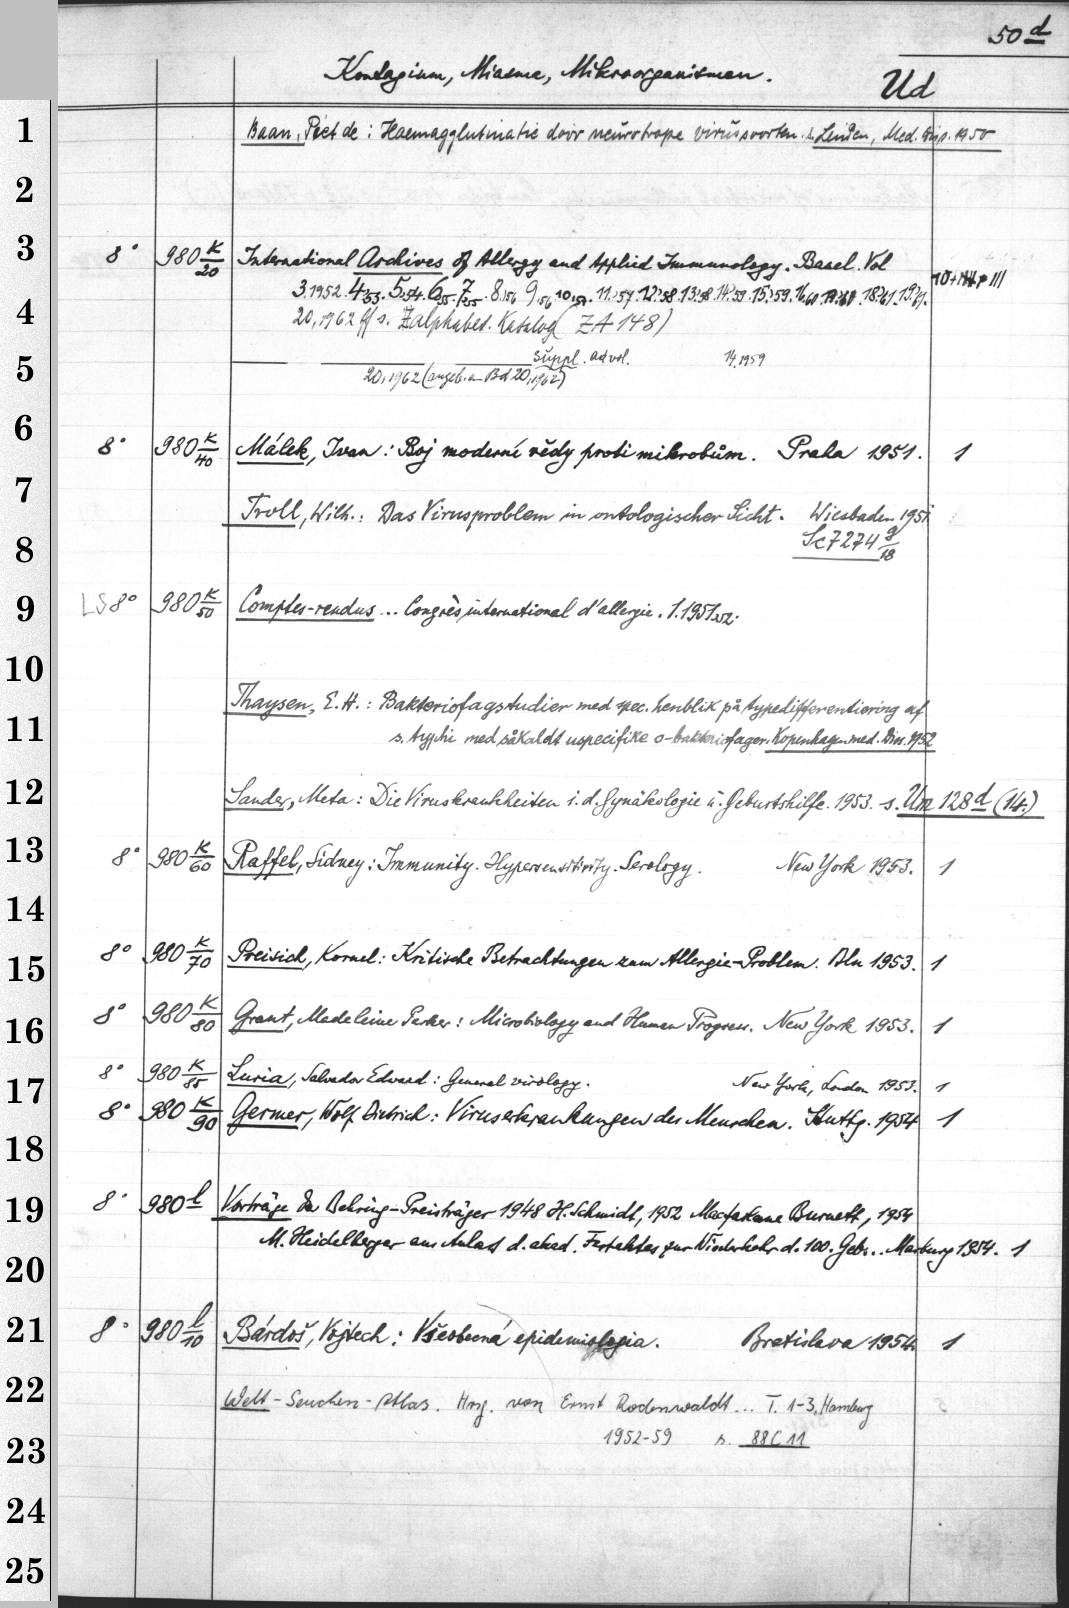 50 d
Kontagium, Miasma, Mikroorganismen.
Ud
1
Baan, Piet de: Haemagglutinatie door neurotrope virussoorten. s. Leiden, Med. Diss. 1950
2
3
8° 980 K/20 International Archives of Allergy and Applied Immunology. Basel. Vol
3.1952. 4.53. 5.54. 6.55. 7.55. 8.56 9.56 10.57. 11.57. 12.58. 13.58. 14.59. 15.59. 16.60 17.60. 18.61. 19.61.
4
20, 1962 ff s. Zalphabet. Katalog (ZA 148)
suppl. ad vol. 14.1959
5
20, 1962 (angeb. an Bd 20, 1962)
6
8° 980 K/40 Málek, Ivan: Boj moderní vědy proti mikrobům. Praha 1951. 1
7
Troll, Wilh.: Das Virusproblem in ontologischer Sicht. Wiesbaden 1951
8
Sc 7274 g/18
9
LS 8° 980 K/50 Comptes-rendus ... Congrès international d'allergie. 1.1951/52.
10
Thaysen, E. H.: Bakteriofagstudier med spec. henblik på typedifferentiering af
11
s. typhi med såkaldt uspecifike o-bakteriofager. Kopenhagen. med. Diss. 1952
12
Sander, Meta: Die Viruskrankheiten i. d. Gynäkologie u. Geburtshilfe. 1953. s. Un 128 d (14.)
13
8° 980 K/60 Raffel, Sidney: Immunity. Hypersensitivity. Serology. New York 1953. 1
14
15
8° 980 K/70 Preisich, Kornel: Kritische Betrachtungen zum Allergie-Problem. Bln 1953. 1
16
8° 980 K/80 Grant, Madeleine Parker: Microbiology and Human Progress. New York 1953. 1
17
8° 980 K/85 Luria, Salvador Edward: General virology. New York, London 1953. 1
8° 980 K/90 Germer, Wolf Dietrich: Viruserkrankungen des Menschen. Stuttg. 1954 1
18
19
8° 980 l Vorträge der Behring-Preisträger 1948 H. Schmidt, 1952 Macfarlane Burnett, 1954
M. Heidelberger aus Anlass d. akad. Festaktes zur Wiederkehr d. 100. Geb... Marburg 1954. 1
20
21
8° 980 l/10 Bárdoš, Vojtech: Všeobecná epidemiologia. Bratislava 1954. 1
22
Welt-Seuchen-Atlas. Hrsg. von Ernst Rodenwaldt... T. 1-3. Hamburg
23
1952-59 s. 88 C 11
24
25